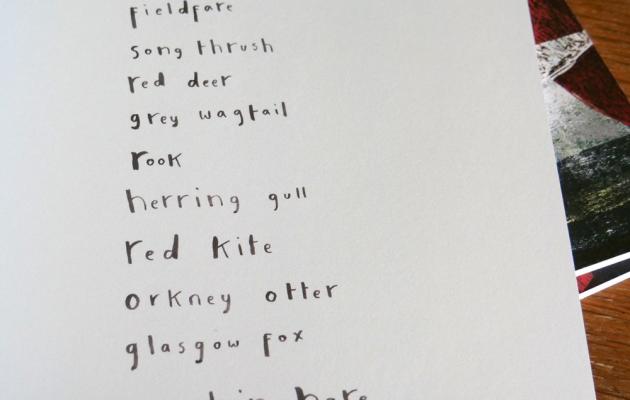 fieldfare
song thrush
red deer
grey wagtail
rook
herring gull
red kite
orkney otter
glasgow fox
hare